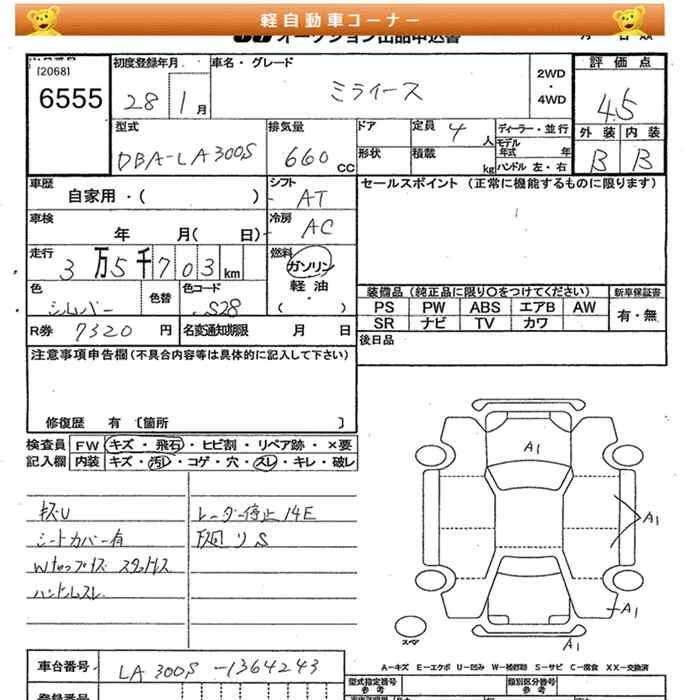 軽自動車コーナー
オークション出品申込書
[2068]
6555
初度登録年月
28 1月
車名・グレード
ミライース
2WD
・
4WD
評価点
4.5
外装 内装
B B
型式
DBA-LA300S
排気量
660 CC
ドア
形状
定員 4人
積載 kg
ディーラー・並行
モデル年式 年
ハンドル 左・右
車歴
自家用・( )
シフト
AT
セールスポイント (正常に機能するものに限ります)
車検
年 月( 日)
冷房
AC
走行
3万5千703km
燃料
ガソリン
軽油
・
( )
色
シルバー
色替
色コード
S28
装備品 (純正品に限り○をつけてください)
新車保証書
PS PW ABS エアB AW
SR ナビ TV カワ
有・無
R券 7320円
名変通知期限 月 日
後日品
注意事項申告欄(不具合内容等は具体的に記入して下さい)
修復歴 有 〔箇所 〕
検査員
記入欄
FW キズ・飛石・ヒビ割・リペア跡・×要
内装 キズ・汚レ・コゲ・穴・スレ・キレ・破レ
キズU
シートカバー有
ハンドルスレ
レーダー停止14E
A1
A1
A1
A1
スペア
A-キズ E-エクボ U-凹み W-補修跡 S-サビ C-腐食 XX-交換済
車台番号
LA300S-1364243
登録番号
型式指定番号
参考
類別区分番号
参考